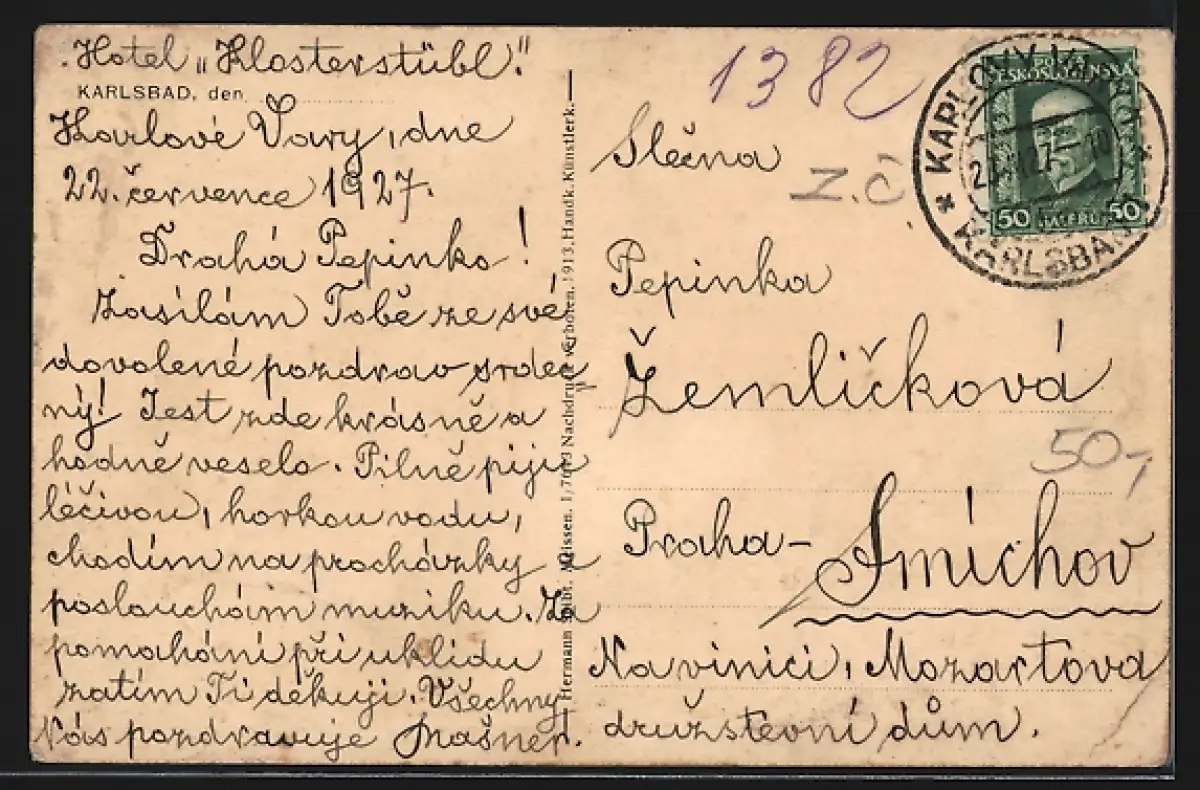 Hotel „Klosterstübl".
KARLSBAD, den
Karlové Vary, dne
22. července 1927.
Drahá Pepinko!
Zasílám Tobě ze své
dovolené pozdrav srdeč
ný! Jest zde krásně a
hodně veselo. Pilně piju
léčivou, horkou vodu,
chodím na procházky a
poslouchám muziku. Za
pomahání při uklidu
zatím Ti děkuji. Všechny
Vás pozdravuje Mašner.
Hermann Seibt, Meissen. 1/7613 Nachdruck verboten. 1913. Handk. Künstlerk.
1382
Slečna
Z.Č.
Pepinka
Žemličková
50,-
Praha-Smíchov
Na vinici, Mozartova
družstevní dům.
KARLOVY VARY
KARLSBAD
ČESKOSLOVENSKÁ
50 HALÉŘŮ 50